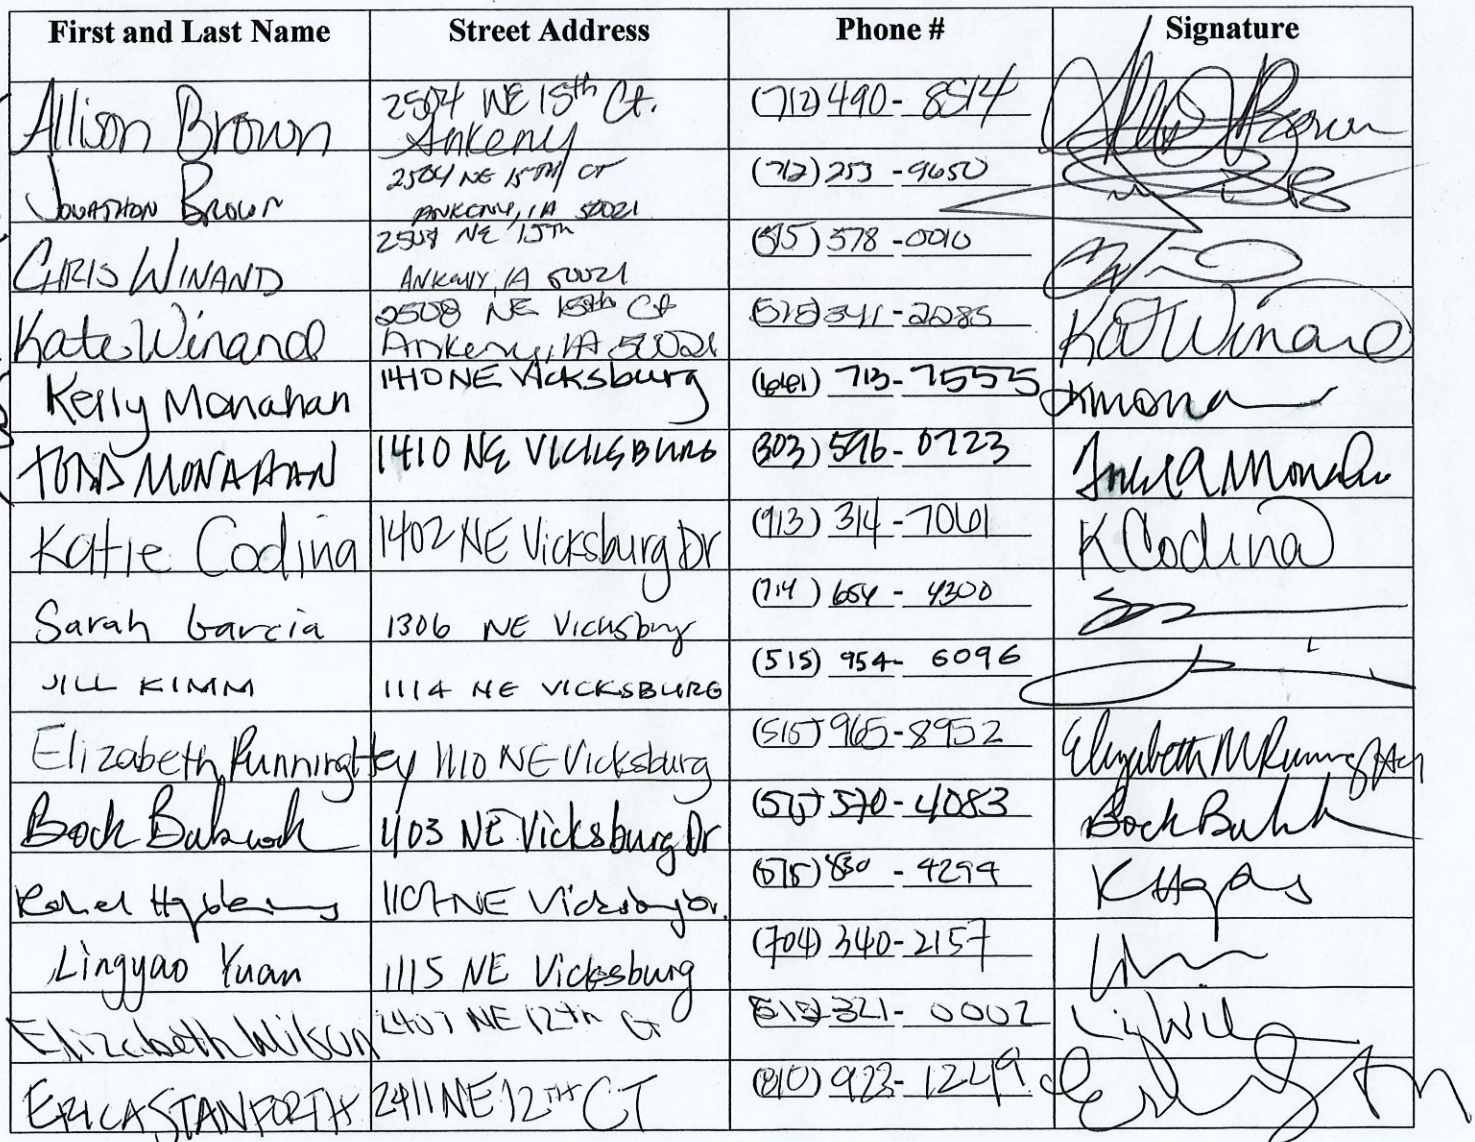 First and Last Name Street Address Phone # Signature
Allison Brown 2504 NE 15th Ct. Ankeny (712) 490-8514 Brown
Jonathon Brown 2504 NE 15TH CT ANKENY, IA 50021 (712) 253-9650
CHRIS WINAND 2508 NE 15TH ANKENY, IA 50021 (515) 578-0010
Kate Winand 2508 NE 15th Ct Ankeny, IA 50021 (515) 341-2285 Kat Winand
Kelly Monahan 1410 NE Vicksburg (661) 713-7555 Kmona
TODD MONAHAN 1410 NE VICKSBURG (303) 596-0723
Katie Codina 1402 NE Vicksburg Dr (913) 314-7061 K Codina
Sarah Garcia 1306 NE Vicksburg (714) 654-4300
JILL KIMM 1114 NE VICKSBURG (515) 954-6096
Elizabeth Runninghey 1110 NE Vicksburg (515) 965-8952 Elizabeth M
Bock Babcock 1403 NE Vicksburg Dr (515) 570-4083 Bock
1107 NE Vicksburg Dr. (515) 830-4294
Lingyao Yuan 1115 NE Vicksburg (704) 340-2157
Elizabeth Wilson 2407 NE 12th Ct (515) 321-0002
ERICA STANFORTH 2411 NE 12TH CT (810) 923-1249